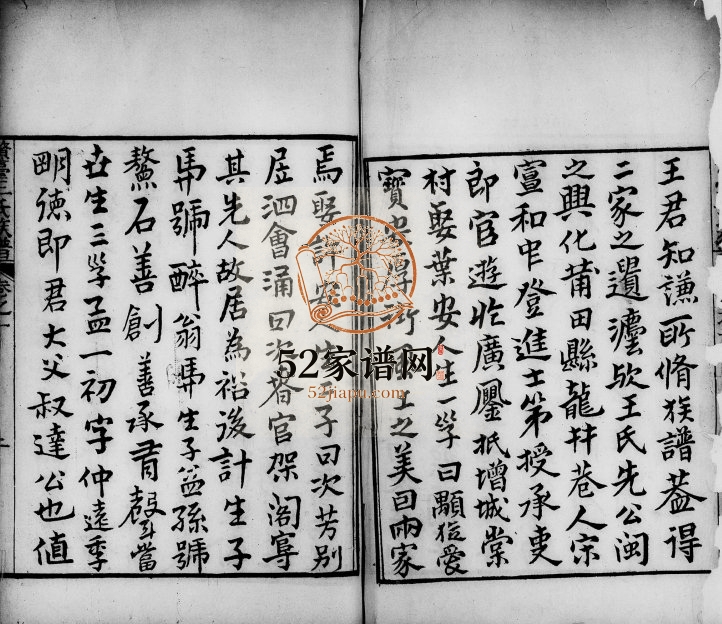 王君知謙所脩族譜蓋得
二家之遺瀋歟王氏先公閩
之興化莆田縣龍井巷人宋
宣和中登進士第授承叓
郎官遊於廣𨞬抵增城棠
村娶葉安人生一學曰顯狻愛
寶安 土之美曰兩家
焉娶許安人生 子曰次芳別
居泗會涌曰次 官架阁寧
其先人故居為裕後計生子
馬號醉翁馬生子益孫號
鰲石善創善承有 當
世生三學孟一初字仲遠季
明德即君大父叔達公也值
52家谱网
52jiapu.com